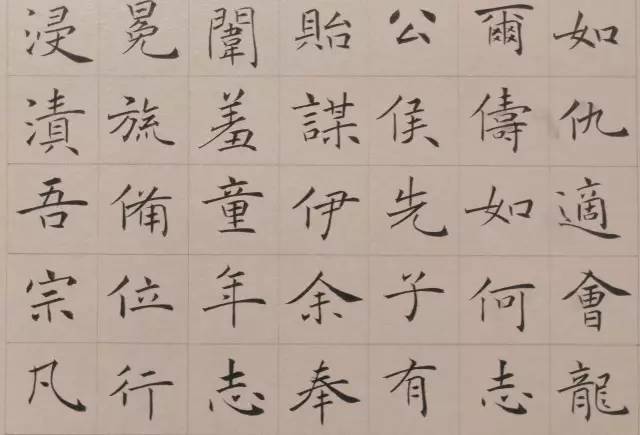 如仇適會龍
爾儔如何志
公侯先子有
貽謀伊余奉
闈羞童年志
冕旒備位行
浸漬吾宗凡